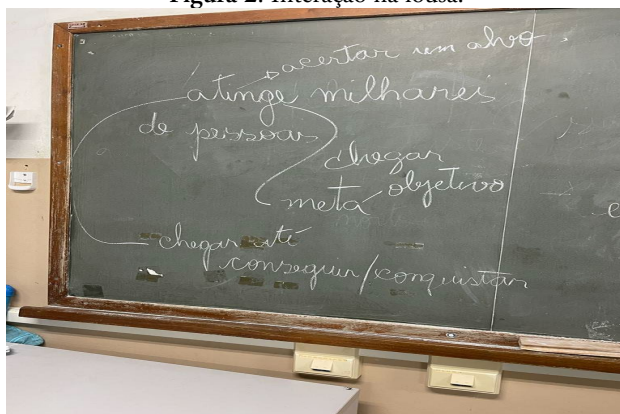 Figura 2. Interação na lousa.
acertar um alvo
atinge milhares
de pessoas
chegar
meta objetivo
chegar até
conseguir/conquistar